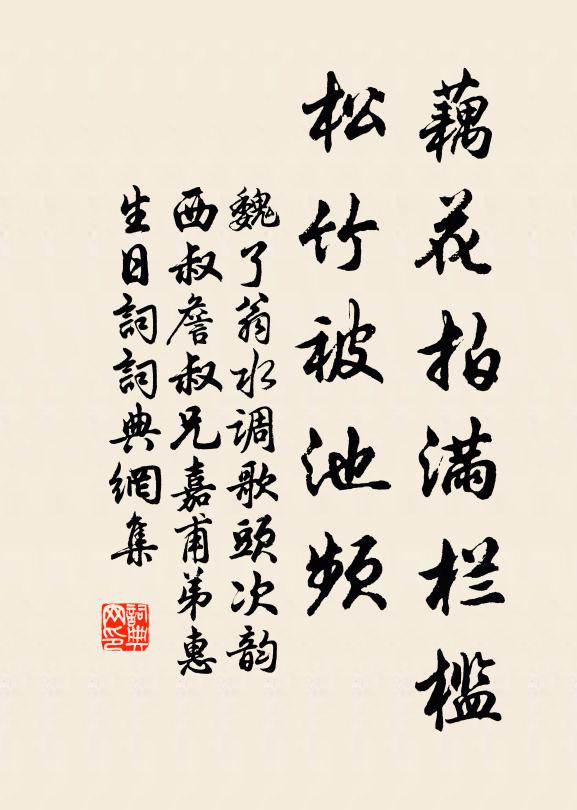 藕花拍满栏槛
松竹被池频
魏了翁水调歌頭次韵
西叔詹叔兄嘉甫弟惠
生日詞詞典網集
詞典网印